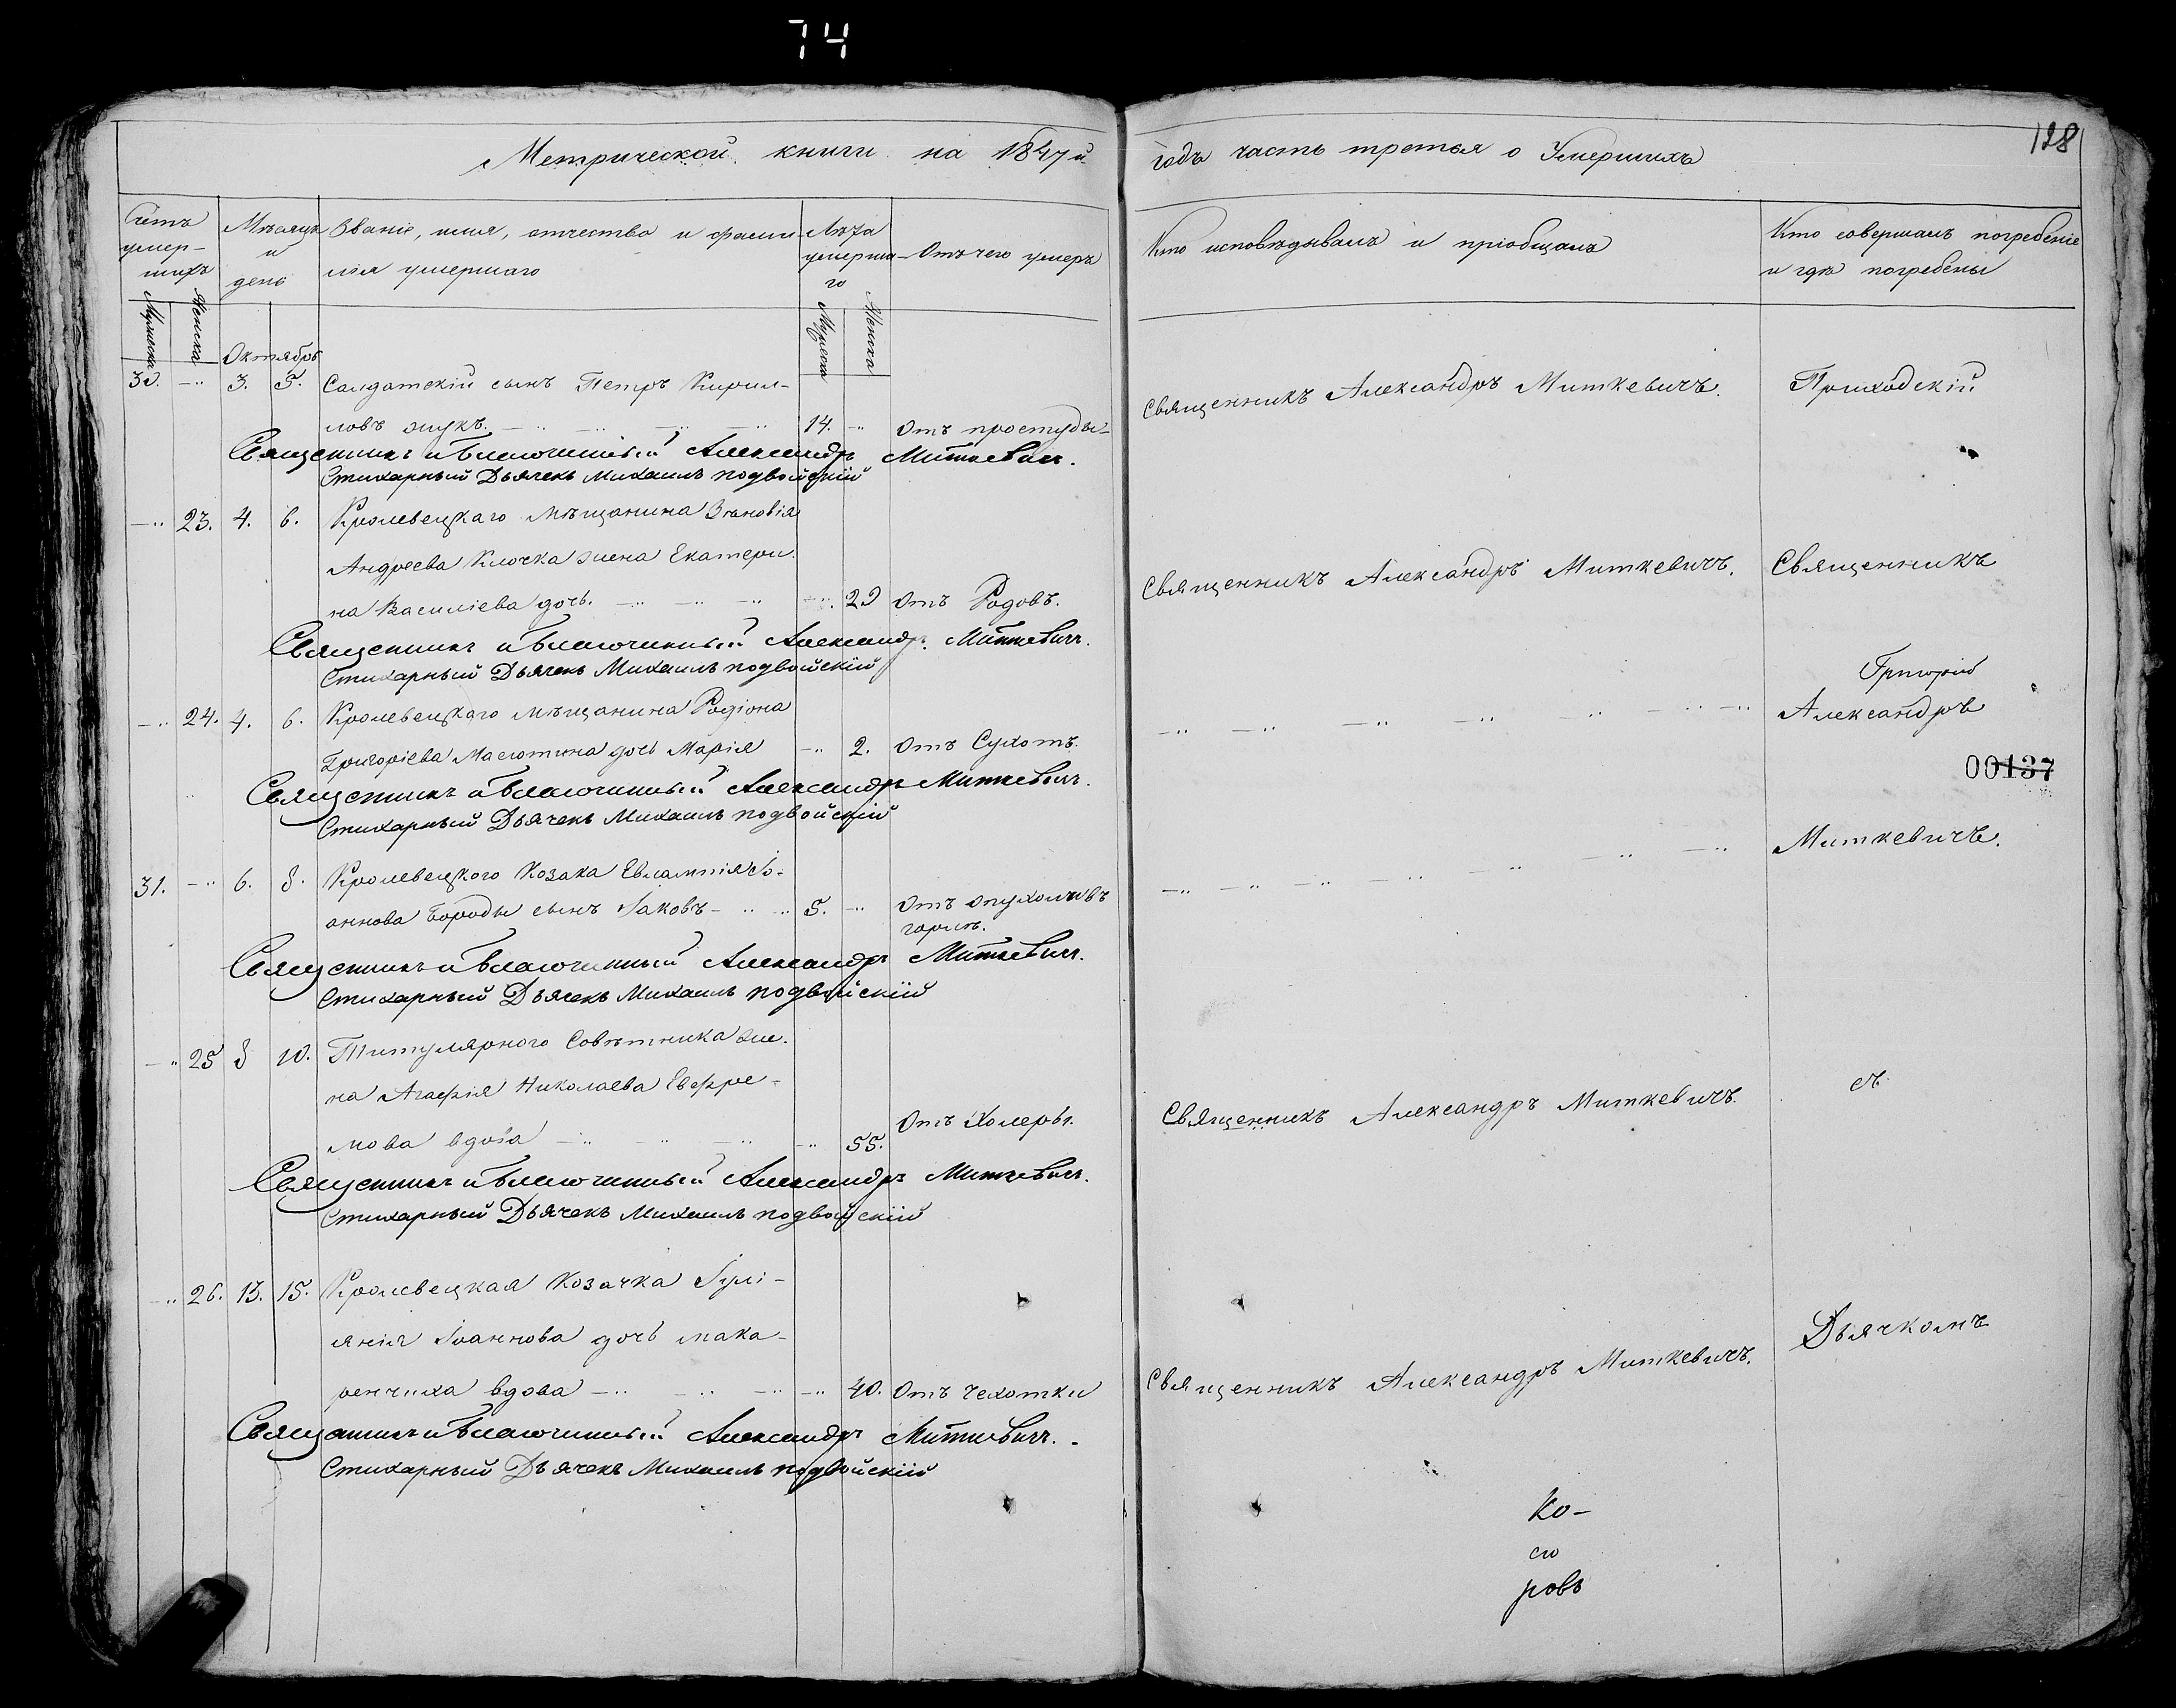 74
128
Метрической книги на 1847й годъ часть третья о Умершихъ
Счетъ умер-шихъ
Мужеска
Женска
Мѣсяцъ и день
Званіе, имя, отчество и фами-
лія умершаго
Лѣта умерша-го
Мужеска
Женска
Отъ чего умеръ
Кто исповѣдывалъ и пріобщалъ
Кто совершалъ погребеніе
и гдѣ погребены
Октябрь
30. -„ 3. 5. Салдатскій сынъ Петръ Кирил-
ловъ жукъ. 14. -„ Отъ простуды
Священникъ Александръ Миткевичъ.
Приходскій
Священникъ и Благочинный Александръ Миткевичъ.
Стихарный Дьячекъ Михаилъ подвойскій
-„ 23. 4. 6. Кролевецкаго мѣщанина Зѣновія
Андреева Клочка жена Екатери-
на Василіева дочь. -„ 29 Отъ Родовъ.
Священникъ Александръ Миткевичъ.
Священникъ
Священникъ и Благочинный Александръ Миткевичъ.
Стихарный Дьячекъ Михаилъ подвойскій
Григорій
-„ 24. 4. 6. Кролевецкаго мѣщанина Родіона
Григоріева Масютина дочь Марія -„ 2. Отъ Сухотъ.
Александръ
00137
Священникъ и Благочинный Александръ Миткевичъ.
Стихарный Дьячекъ Михаилъ подвойскій
Миткевичъ.
31. -„ 6. 8. Кролевецкого Козака Евлампія Іо-
аннова Бороды сынъ Іаковъ 5. -„ Отъ опухоли въ
горлѣ.
Священникъ и Благочинный Александръ Миткевичъ.
Стихарный Дьячекъ Михаилъ подвойскій
-„ 25 8 10. Титулярного Совѣтника же-
на Агафія Николаева Ефре-
мова вдова -„ 55. Отъ Холеры.
Священникъ Александръ Миткевичъ.
съ
Священникъ и Благочинный Александръ Миткевичъ.
Стихарный Дьячекъ Михаилъ подвойскій
-„ 26. 13. 15. Кролевецкая Козачка Іулі-
янія Іоаннова дочь мака-
ренчиха вдова -„ 40. Отъ чехотки
Священникъ Александръ Миткевичъ.
Дьячкомъ
Священникъ и Благочинный Александръ Миткевичъ.
Стихарный Дьячекъ Михаилъ подвойскій
Ко-
ровъ